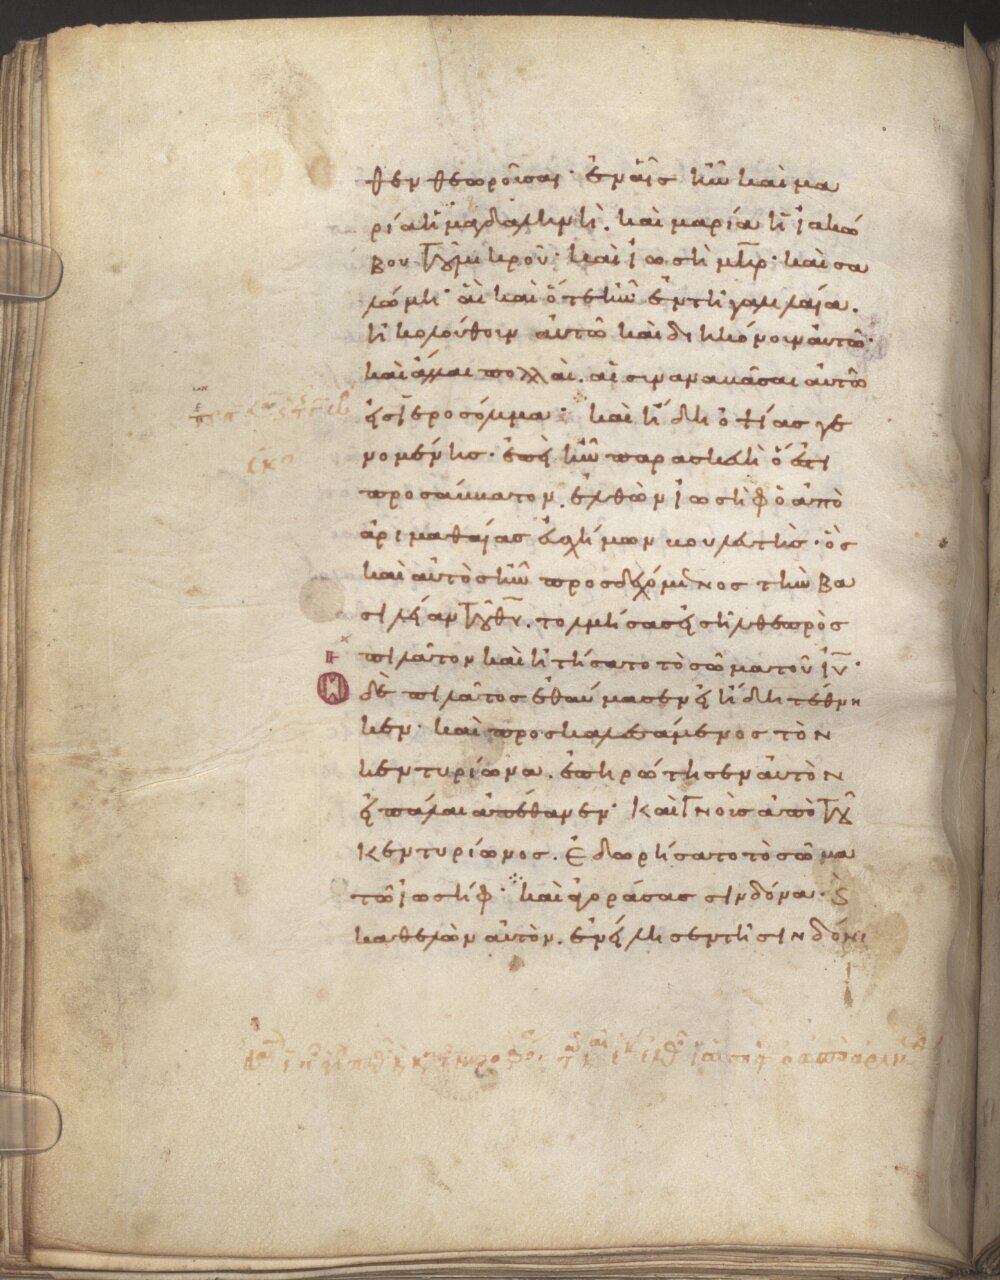 θεν θεωροῦσαι· ἐν αἷς ἦν καὶ μα
ρία ἡ μαγδαληνὴ. καὶ μαρία ἡ ἰακώ
βου τοῦ μικροῦ· καὶ ἰωσὴ μηρ· καὶ σα
λώμη· αἳ καὶ ὅτε ἦν ἐν τῆ γαλιλαία.
ἠκολούθουν αὐτῶ καὶ διηκόνουν αὐτῶ·
καὶ ἄλλαι πολλαὶ. αἱ συναναβᾶσαι αὐτῶ
εἰς ἱεροσόλυμα· καὶ ἤδη ὀψίας γε
νομένης. ἐπεὶ ἦν παρασκευὴ ὅ ἐστι
προσάββατον. ἐλθὼν ἰωσὴφ ὁ ἀπὸ
ἀριμαθαίας εὐσχήμων βουλευτὴς. ὃς
καὶ αὐτὸς ἦν προσδεχόμενος τὴν βα
σιλείαν τοῦ θυ. τολμήσας εἰσῆλθε πρὸς
πιλᾶτον καὶ ἠτήσατο τὸ σῶμα τοῦ ιυ·
Ο δὲ πιλᾶτος ἐθαύμασεν εἰ ἤδη τέθνη
κεν· καὶ προσκαλεσάμενος τὸν
κεντυρίωνα. ἐπηρώτησεν αὐτὸν
εἰ πάλαι ἀπέθανεν· καὶ γνοὺς ἀπὸ τοῦ
κεντυρίωνος. ἐδωρήσατο τὸ σῶμα
τῶ ἰωσήφ· καὶ ἀγοράσας σινδόνα. καὶ
καθελὼν αὐτὸν. ἐνείλησεν τῆ σινδόνι